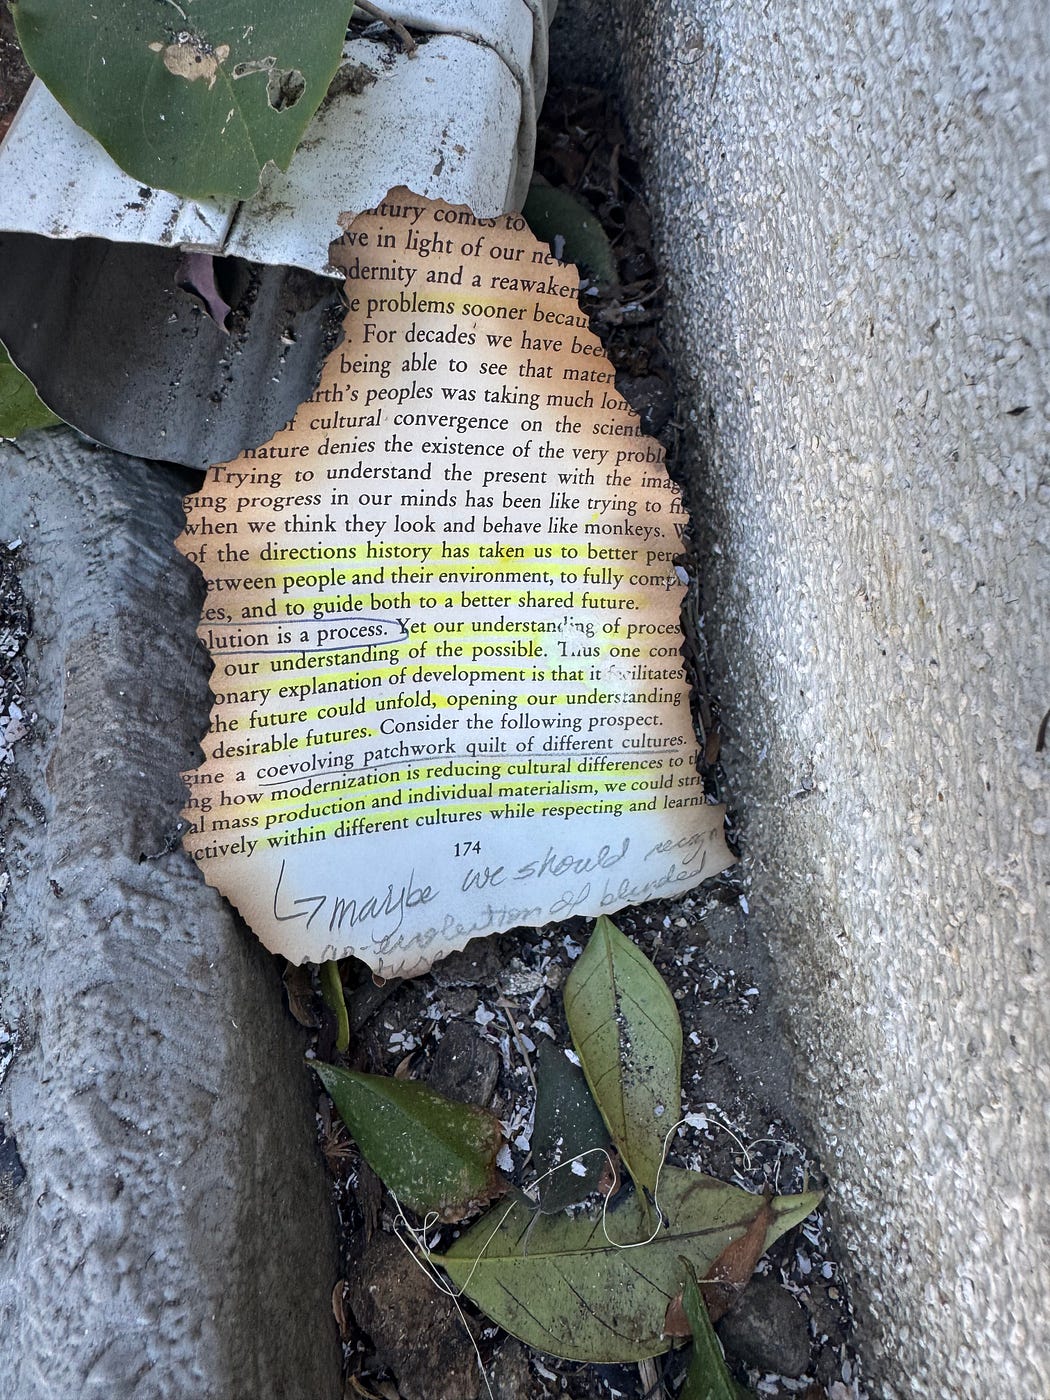 ntury comes to
ive in light of our new
odernity and a reawaken
e problems sooner becau
. For decades we have been
being able to see that mater
arth's peoples was taking much long
of cultural convergence on the scient
nature denies the existence of the very proble
Trying to understand the present with the imag
ging progress in our minds has been like trying to fi
when we think they look and behave like monkeys. W
of the directions history has taken us to better perc
etween people and their environment, to fully compr
es, and to guide both to a better shared future.
olution is a process. Yet our understanding of proces
our understanding of the possible. Thus one con
onary explanation of development is that it facilitates
the future could unfold, opening our understanding
desirable futures. Consider the following prospect.
gine a coevolving patchwork quilt of different cultures.
ng how modernization is reducing cultural differences to th
al mass production and individual materialism, we could stri
ctively within different cultures while respecting and learnin
174
maybe we should recogn
of blended